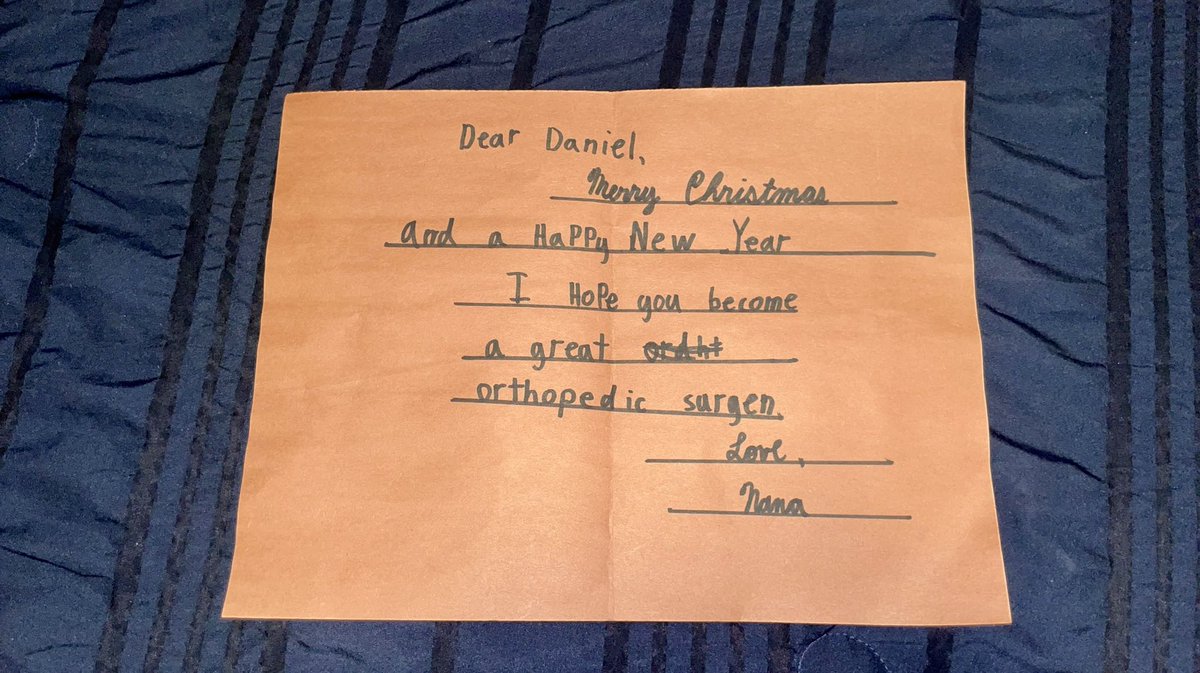 Dear Daniel,
Merry Christmas
and a HaPPy New Year
I HoPe you become
a great
orthopedic surgen.
Love,
Nana